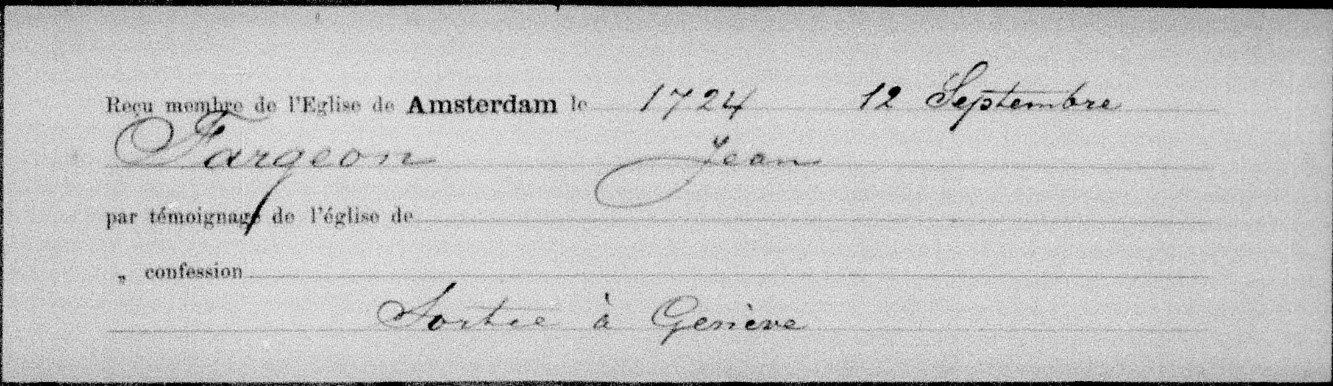 Reçu membre de l'Eglise de Amsterdam le 1724 12 Septembre
Fargeon Jean
par témoignage de l'église de
„ confession
Sortie à Genève